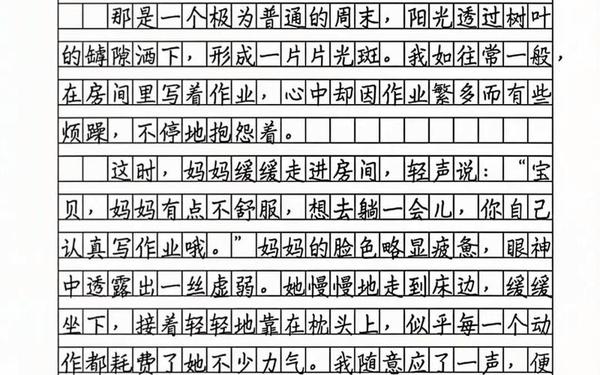 那是一个极为普通的周末，阳光透过树叶
的罅隙洒下，形成一片片光斑。我如往常一般，
在房间里写着作业，心中却因作业繁多而有些
烦躁，不停地抱怨着。
这时，妈妈缓缓走进房间，轻声说：“宝
贝，妈妈有点不舒服，想去躺一会儿，你自己
认真写作业哦。”妈妈的脸色略显疲惫，眼神
中透露出一丝虚弱。她慢慢地走到床边，缓缓
坐下，接着轻轻地靠在枕头上，似乎每一个动
作都耗费了她不少力气。我随意应了一声，便